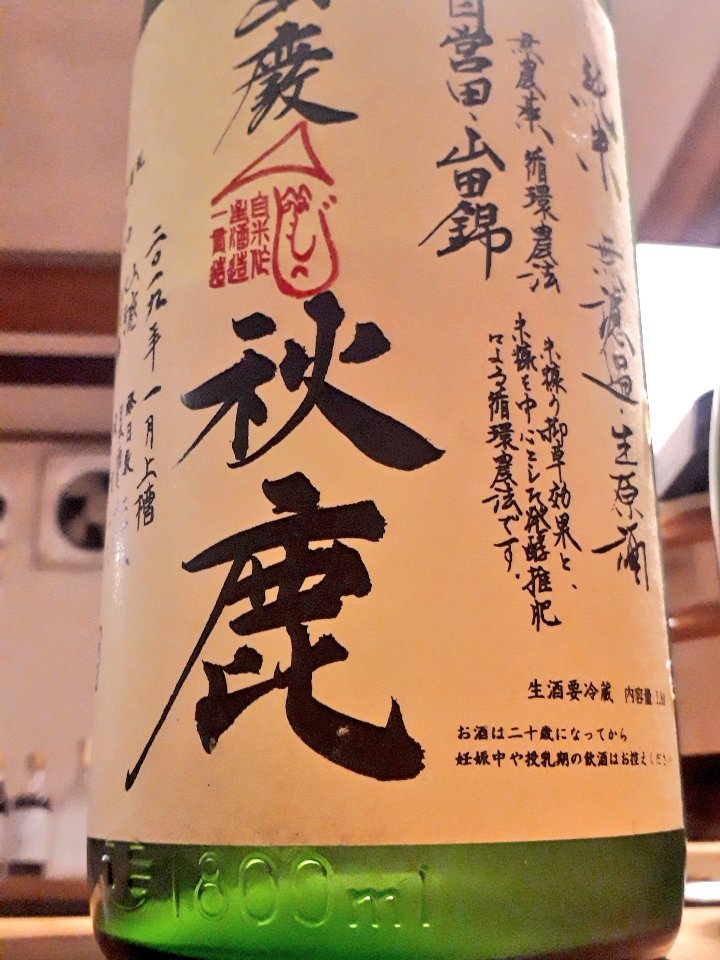 純米 無濾過・生原酒
無農薬、循環農法
米糠の抑草効果と、
米糠を中心とした発酵堆肥
による循環農法です。
自営田、山田錦
嚴
自米作
生酒造
一貫造
秋鹿
二〇一九年 一月上槽
生酒要冷蔵 内容量
お酒は二十歳になってから
妊娠中や授乳期の飲酒はお控えください
1800ml